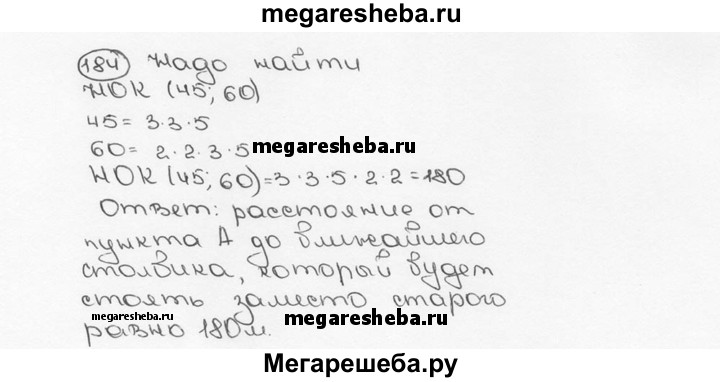 megaresheba.ru
184 Надо найти
НОК (45; 60)
45 = 3·3·5
60 = 2·2·3·5 megaresheba.ru
НОК (45; 60) = 3·3·5·2·2 = 180
Ответ: расстояние от
пункта А до ближайшего
столбика, который будет
стоять заместо старого
megaresheba.ru megaresheba.ru
равно 180 м.
Мегарешеба.ру